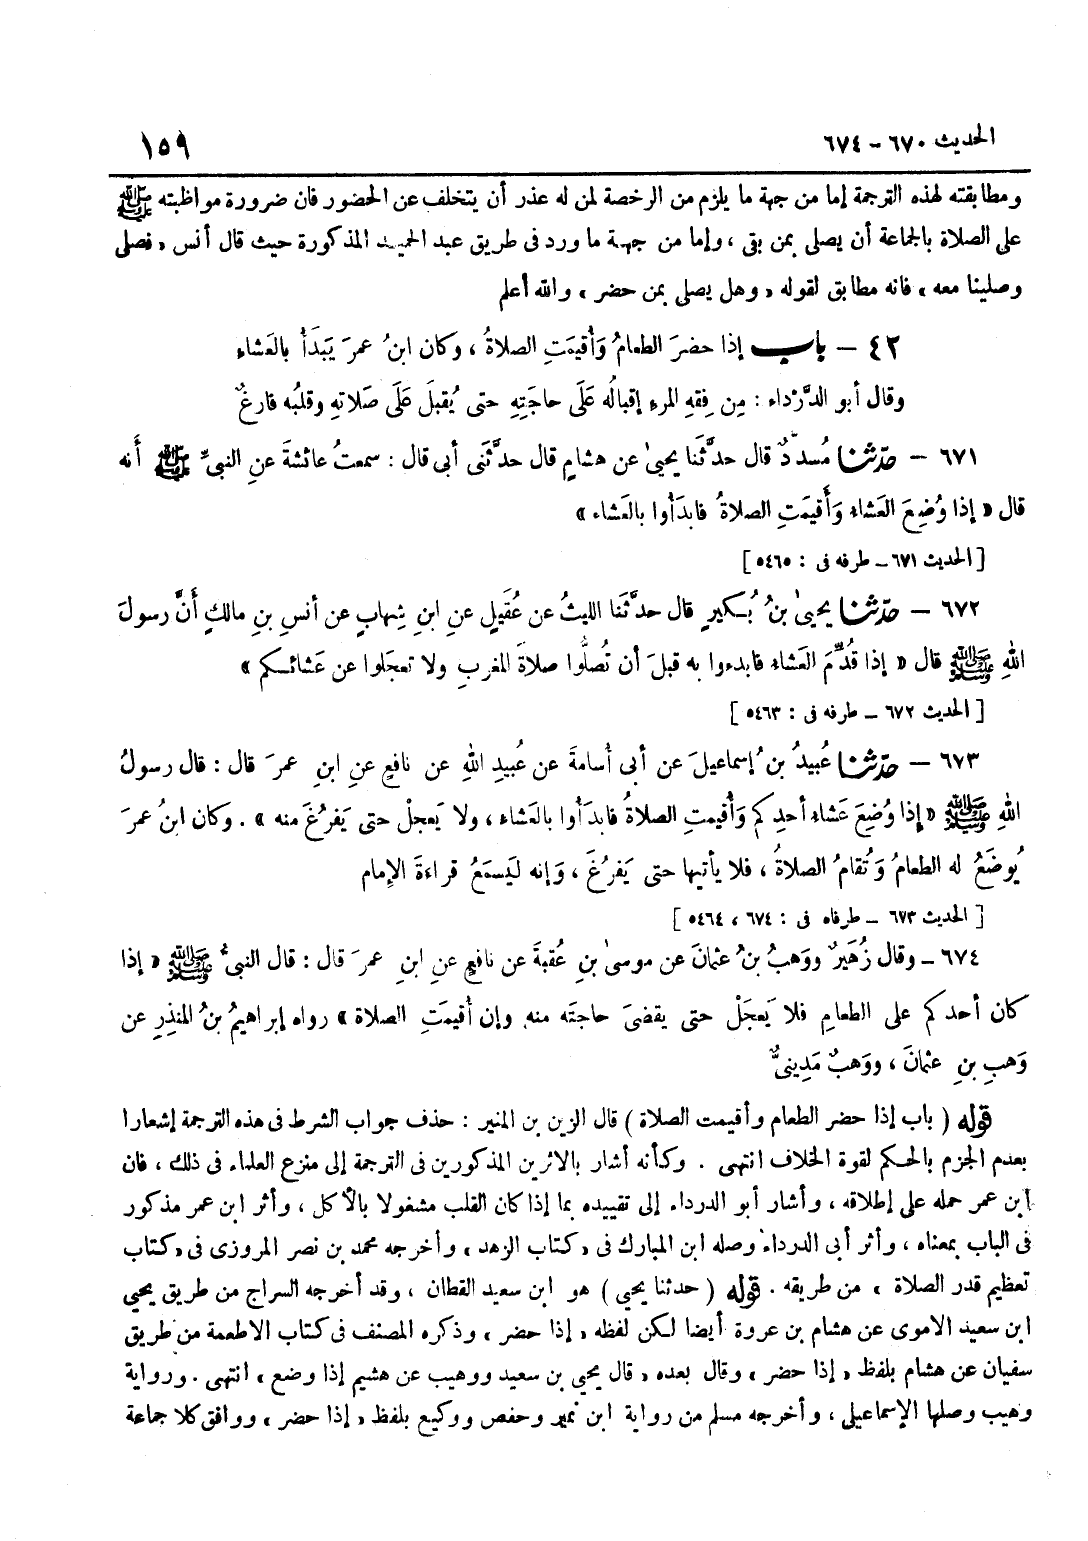 الحديث ٦٧٠ - ٦٧٤
١٥٩
ومطابقته لهذه الترجمة إما من جهة ما يلزم من الرخصة لمن له عذر أن يتخلف عن الحضور فان ضرورة مواظبته ﷺ
على الصلاة بالجماعة أن يصلى بمن بقى ، وإما من جهة ما ورد فى طريق عبد الحميد المذكورة حيث قال أنس « فصلى
وصلينا معه » فانه مطابق لقوله « وهل يصلى بمن حضر » والله أعلم
٤٢ - باب إذا حضرَ الطعامُ وَأُقيمَتِ الصلاةُ ، وكان ابنُ عمرَ يَبدَأُ بالعَشاءِ
وقال أبو الدَّرْداء : مِن فِقهِ المرءِ إقبالُه عَلَى حاجَتِهِ حتى يُقبلَ عَلَى صَلاتهِ وقلبُه فارغٌ
٦٧١ - حدّثنا مُسدّدٌ قال حدثَنا يحيىٰ عن هشامٍ قال حدَّثَنى أبى قال : سمعتُ عائشةَ عنِ النبىِّ ﷺ أَنه
قال « إذا وُضِعَ العَشاءُ وَأُقيمَتِ الصلاةُ فابدَأُوا بالعَشاء »
[ الحديث ٦٧١ - طرفه فى : ٥٤٦٥ ]
٦٧٢ - حدّثنا يحيىٰ بنُ بُكَيرٍ قال حدثَنا الليثُ عن عُقَيلٍ عنِ ابنِ شِهابٍ عن أنسِ بنِ مالكٍ أَنَّ رسولَ
اللهِ ﷺ قال « إذا قُدِّمَ العَشاءُ فابدءوا به قبلَ أن تُصلُّوا صلاةَ المغربِ ولا تعجَلوا عن عَشائكم »
[ الحديث ٦٧٢ - طرفه فى : ٥٤٦٣ ]
٦٧٣ - حدّثنا عُبيدُ بنُ إسماعيلَ عن أبى أُسامةَ عن عُبيدِ اللهِ عن نافعٍ عنِ ابنِ عمرَ قال : قال رسولُ
اللهِ ﷺ « إذا وُضِعَ عَشاءُ أحدِكم وَأُقيمتِ الصلاةُ فابدَأُوا بالعَشاء ، ولا يَعجلْ حتى يَفرُغَ منه » . وكان ابنُ عمرَ
يُوضَعُ له الطعامُ وَتُقامُ الصلاةُ ، فلا يأتيها حتى يَفرُغَ ، وَإنه ليَسمَعُ قراءةَ الإمام
[ الحديث ٦٧٣ - طرفاه فى : ٦٧٤ ، ٥٤٦٤ ]
٦٧٤ - وقال زُهَيرٌ ووَهبُ بنُ عثمانَ عن موسىٰ بنِ عُقبةَ عن نافعٍ عنِ ابنِ عمرَ قال : قال النبىُّ ﷺ « إذا
كان أحدكم على الطعامِ فلا يَعجَلْ حتى يقضىَ حاجتَه منه وإن أُقيمَتِ الصلاة » رواه إبراهيمُ بنُ المنذِرِ عن
وَهبِ بنِ عثمانَ ، ووَهبٌ مَدِينىٌّ
قوله ( باب إذا حضر الطعام وأقيمت الصلاة ) قال الزين بن المنير : حذف جواب الشرط فى هذه الترجمة إشعارا
بعدم الجزم بالحكم لقوة الخلاف انتهى . وكأنه أشار بالاثرين المذكورين فى الترجمة إلى منزع العلماء فى ذلك ، فان
ابن عمر حمله على إطلاقه ، وأشار أبو الدرداء إلى تقييده بما إذا كان القلب مشغولا بالأكل ، وأثر ابن عمر مذكور
فى الباب بمعناه ، وأثر أبى الدرداء وصله ابن المبارك فى « كتاب الزهد » وأخرجه محمد بن نصر المروزى فى « كتاب
تعظيم قدر الصلاة » من طريقه . قوله ( حدثنا يحيى ) هو ابن سعيد القطان ، وقد أخرجه السراج من طريق يحيى
ابن سعيد الاموى عن هشام بن عروة أيضا لكن لفظه « إذا حضر » وذكره المصنف فى كتاب الاطعمة من طريق
سفيان عن هشام بلفظ « إذا حضر » وقال بعده « قال يحيى بن سعيد ووهيب عن هشيم إذا وضع » انتهى . ورواية
وهيب وصلها الإسماعيلى ، وأخرجه مسلم من رواية ابن نمير وحفص ووكيع بلفظ « إذا حضر » ووافق كلا جماعة